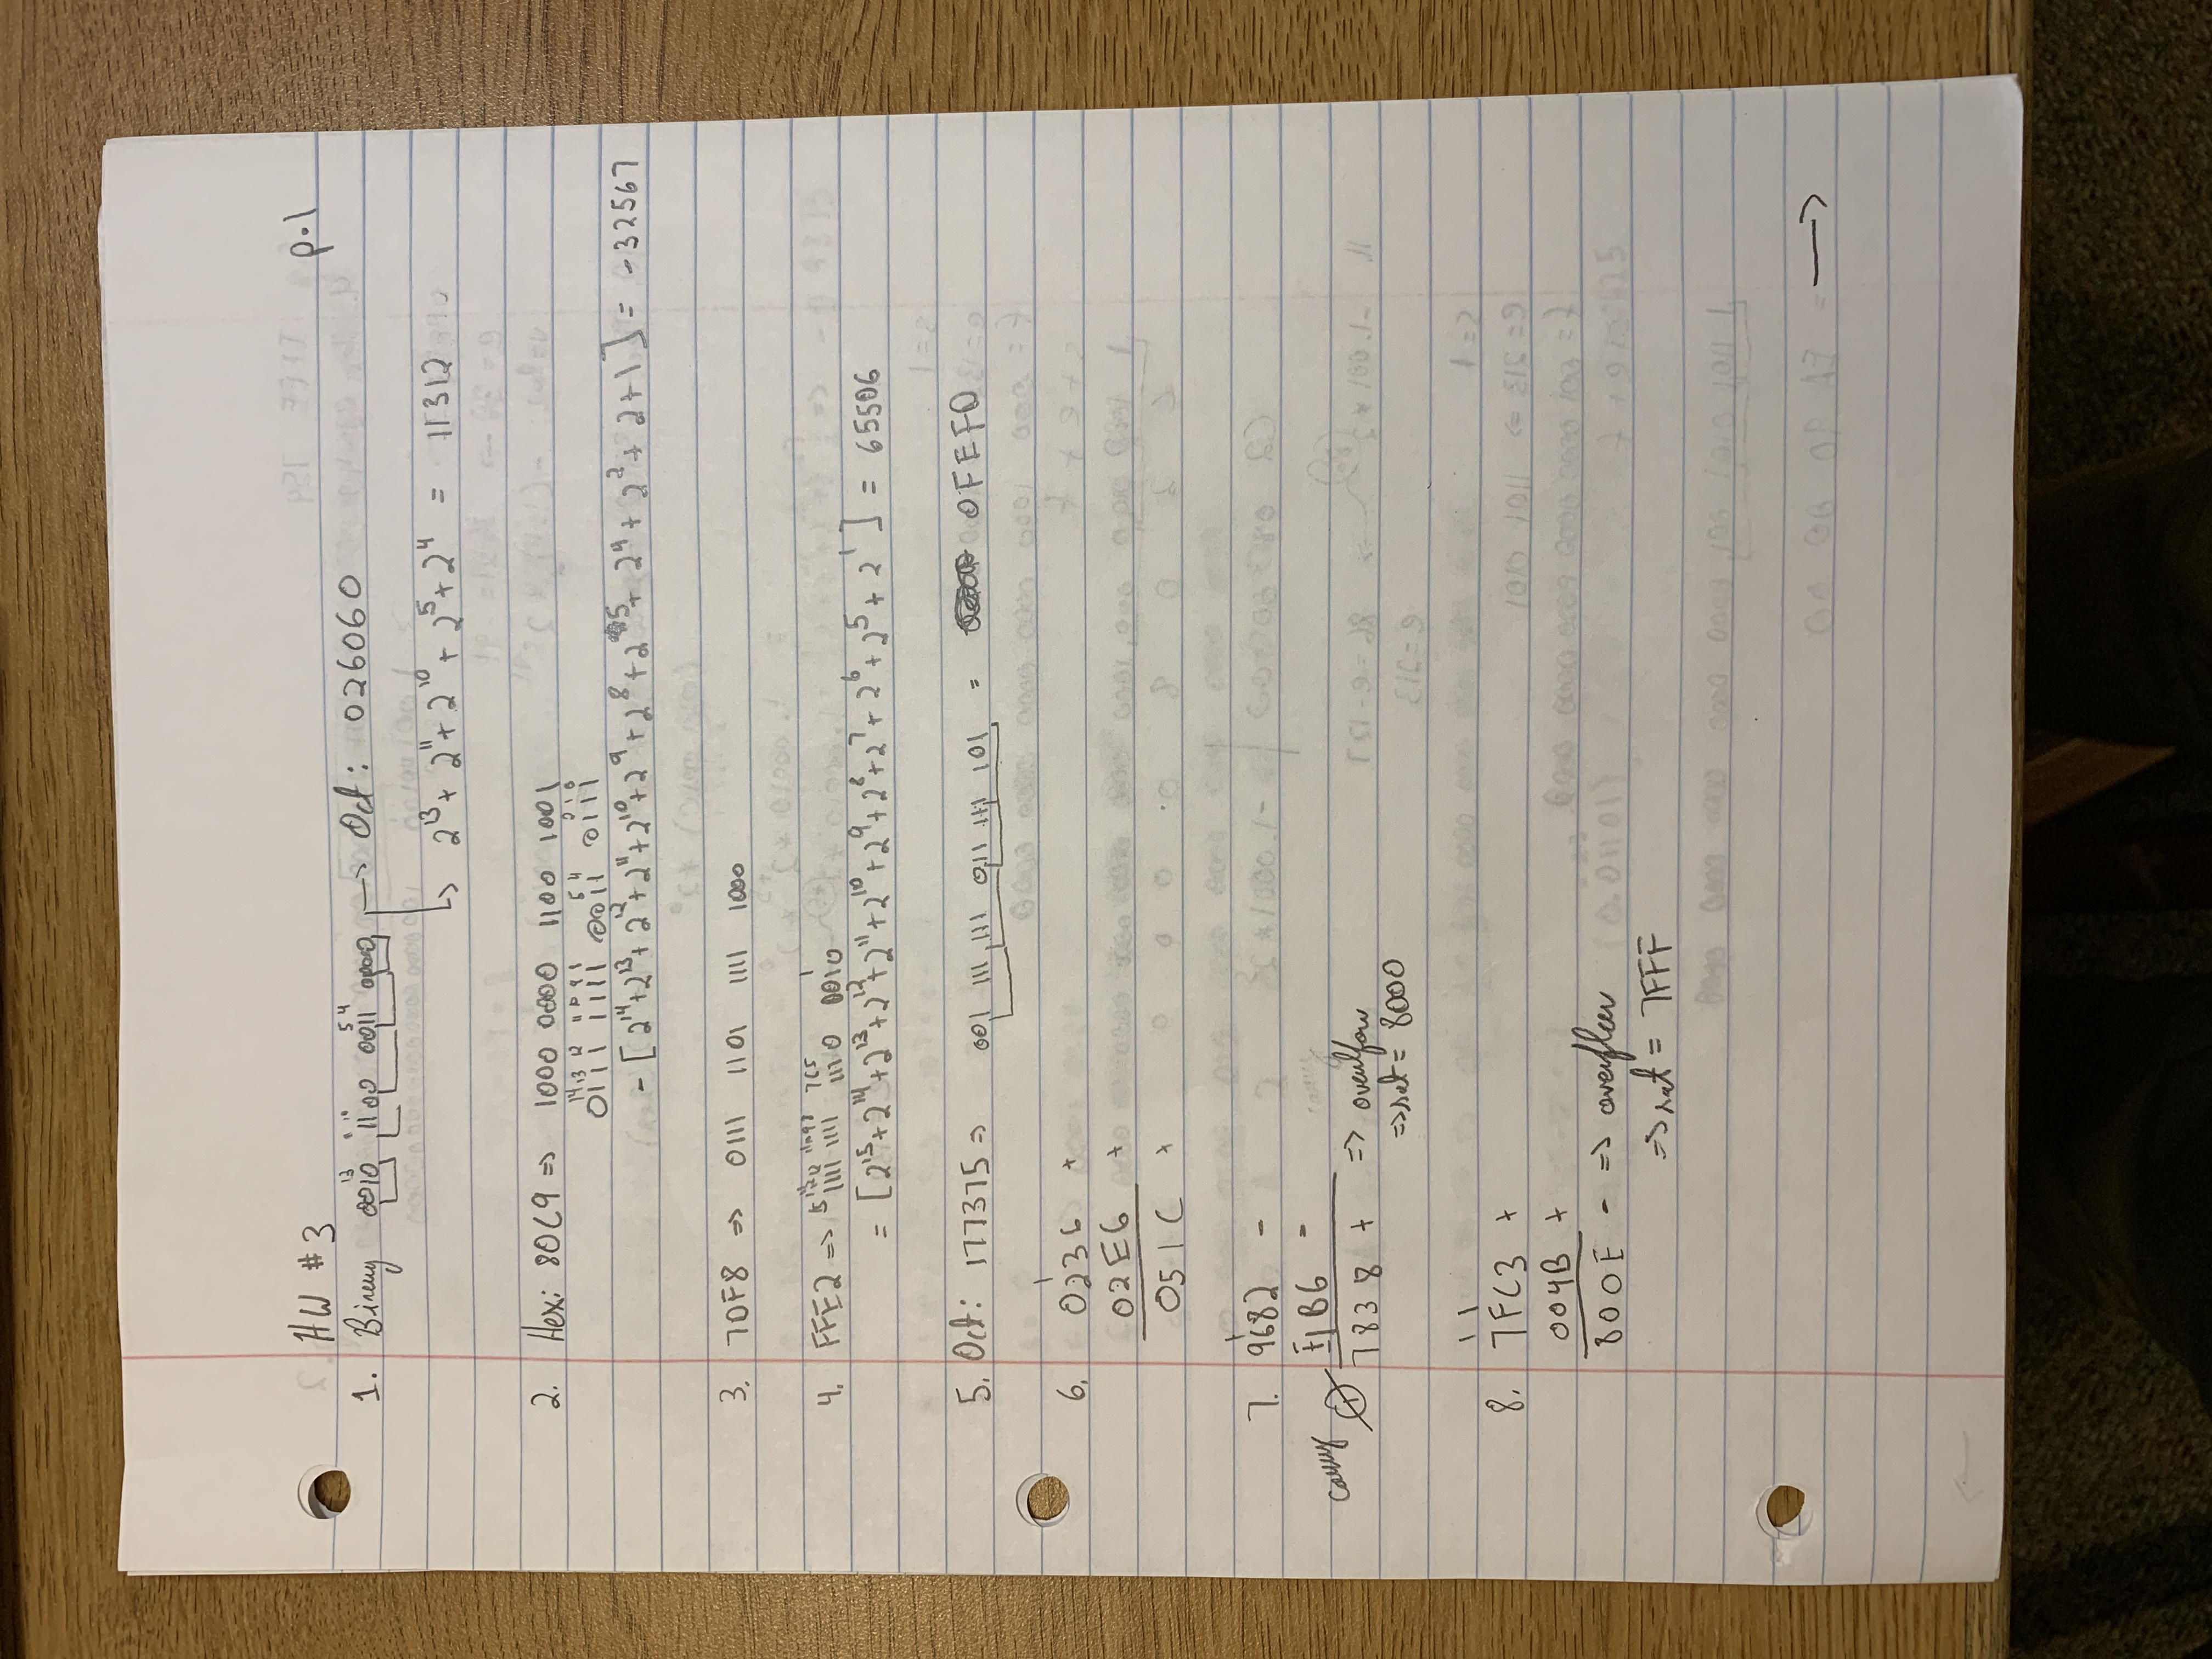 HW #3 p.1
1. Binary 0010 1100 0011 0000 → Oct: 026060
13 11 10 5 4
↳ 2^13 + 2^11 + 2^10 + 2^5 + 2^4 = 11312
2. Hex: 80C9 ⇒ 1000 0000 1100 1001
14 13 12 11 10 9 8 5 4 2 1 0
0111 1111 0011 0111
- [2^14 + 2^13 + 2^12 + 2^11 + 2^10 + 2^9 + 2^8 + 2^5 + 2^4 + 2^2 + 2 + 1] = -32567
3. 7DF8 ⇒ 0111 1101 1111 1000
15 14 13 12 11 10 9 8 7 6 5 1
4. FFE2 ⇒ 1111 1111 1110 0010
= [2^15 + 2^14 + 2^13 + 2^12 + 2^11 + 2^10 + 2^9 + 2^8 + 2^7 + 2^6 + 2^5 + 2^1] = 65506
5. Oct: 177375 ⇒ 001 111 111 011 111 101 = 0FEFD
1
6. 0236 +
02E6 +
051C +
1
7. 9682 -
E1B6 -
carry 1 7838 + ⇒ overlfow
⇒ sat = 8000
1 1
8. 7FC3 +
004B +
800E - ⇒ overflow
⇒ sat = 7FFF
→